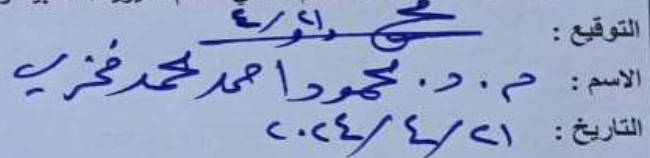 التوقيع : ٤/٢١
الاسم : م . د . محمود احمد محمد فخري
التاريخ : ٢٠٢٤/٤/٢١